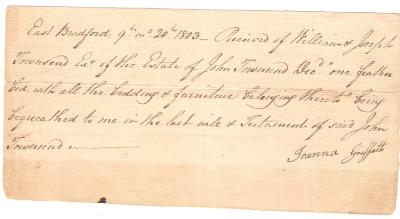 East Bradford, 9th mo 20th 1803 — Received of William & Joseph
Townsend Exrs of the Estate of John Townsend Decd "one feather
bed with all the bedding & furniture belonging thereto" being
bequeathed to me in the last will & Testament of said John
Townsend —
Joanna Griffith